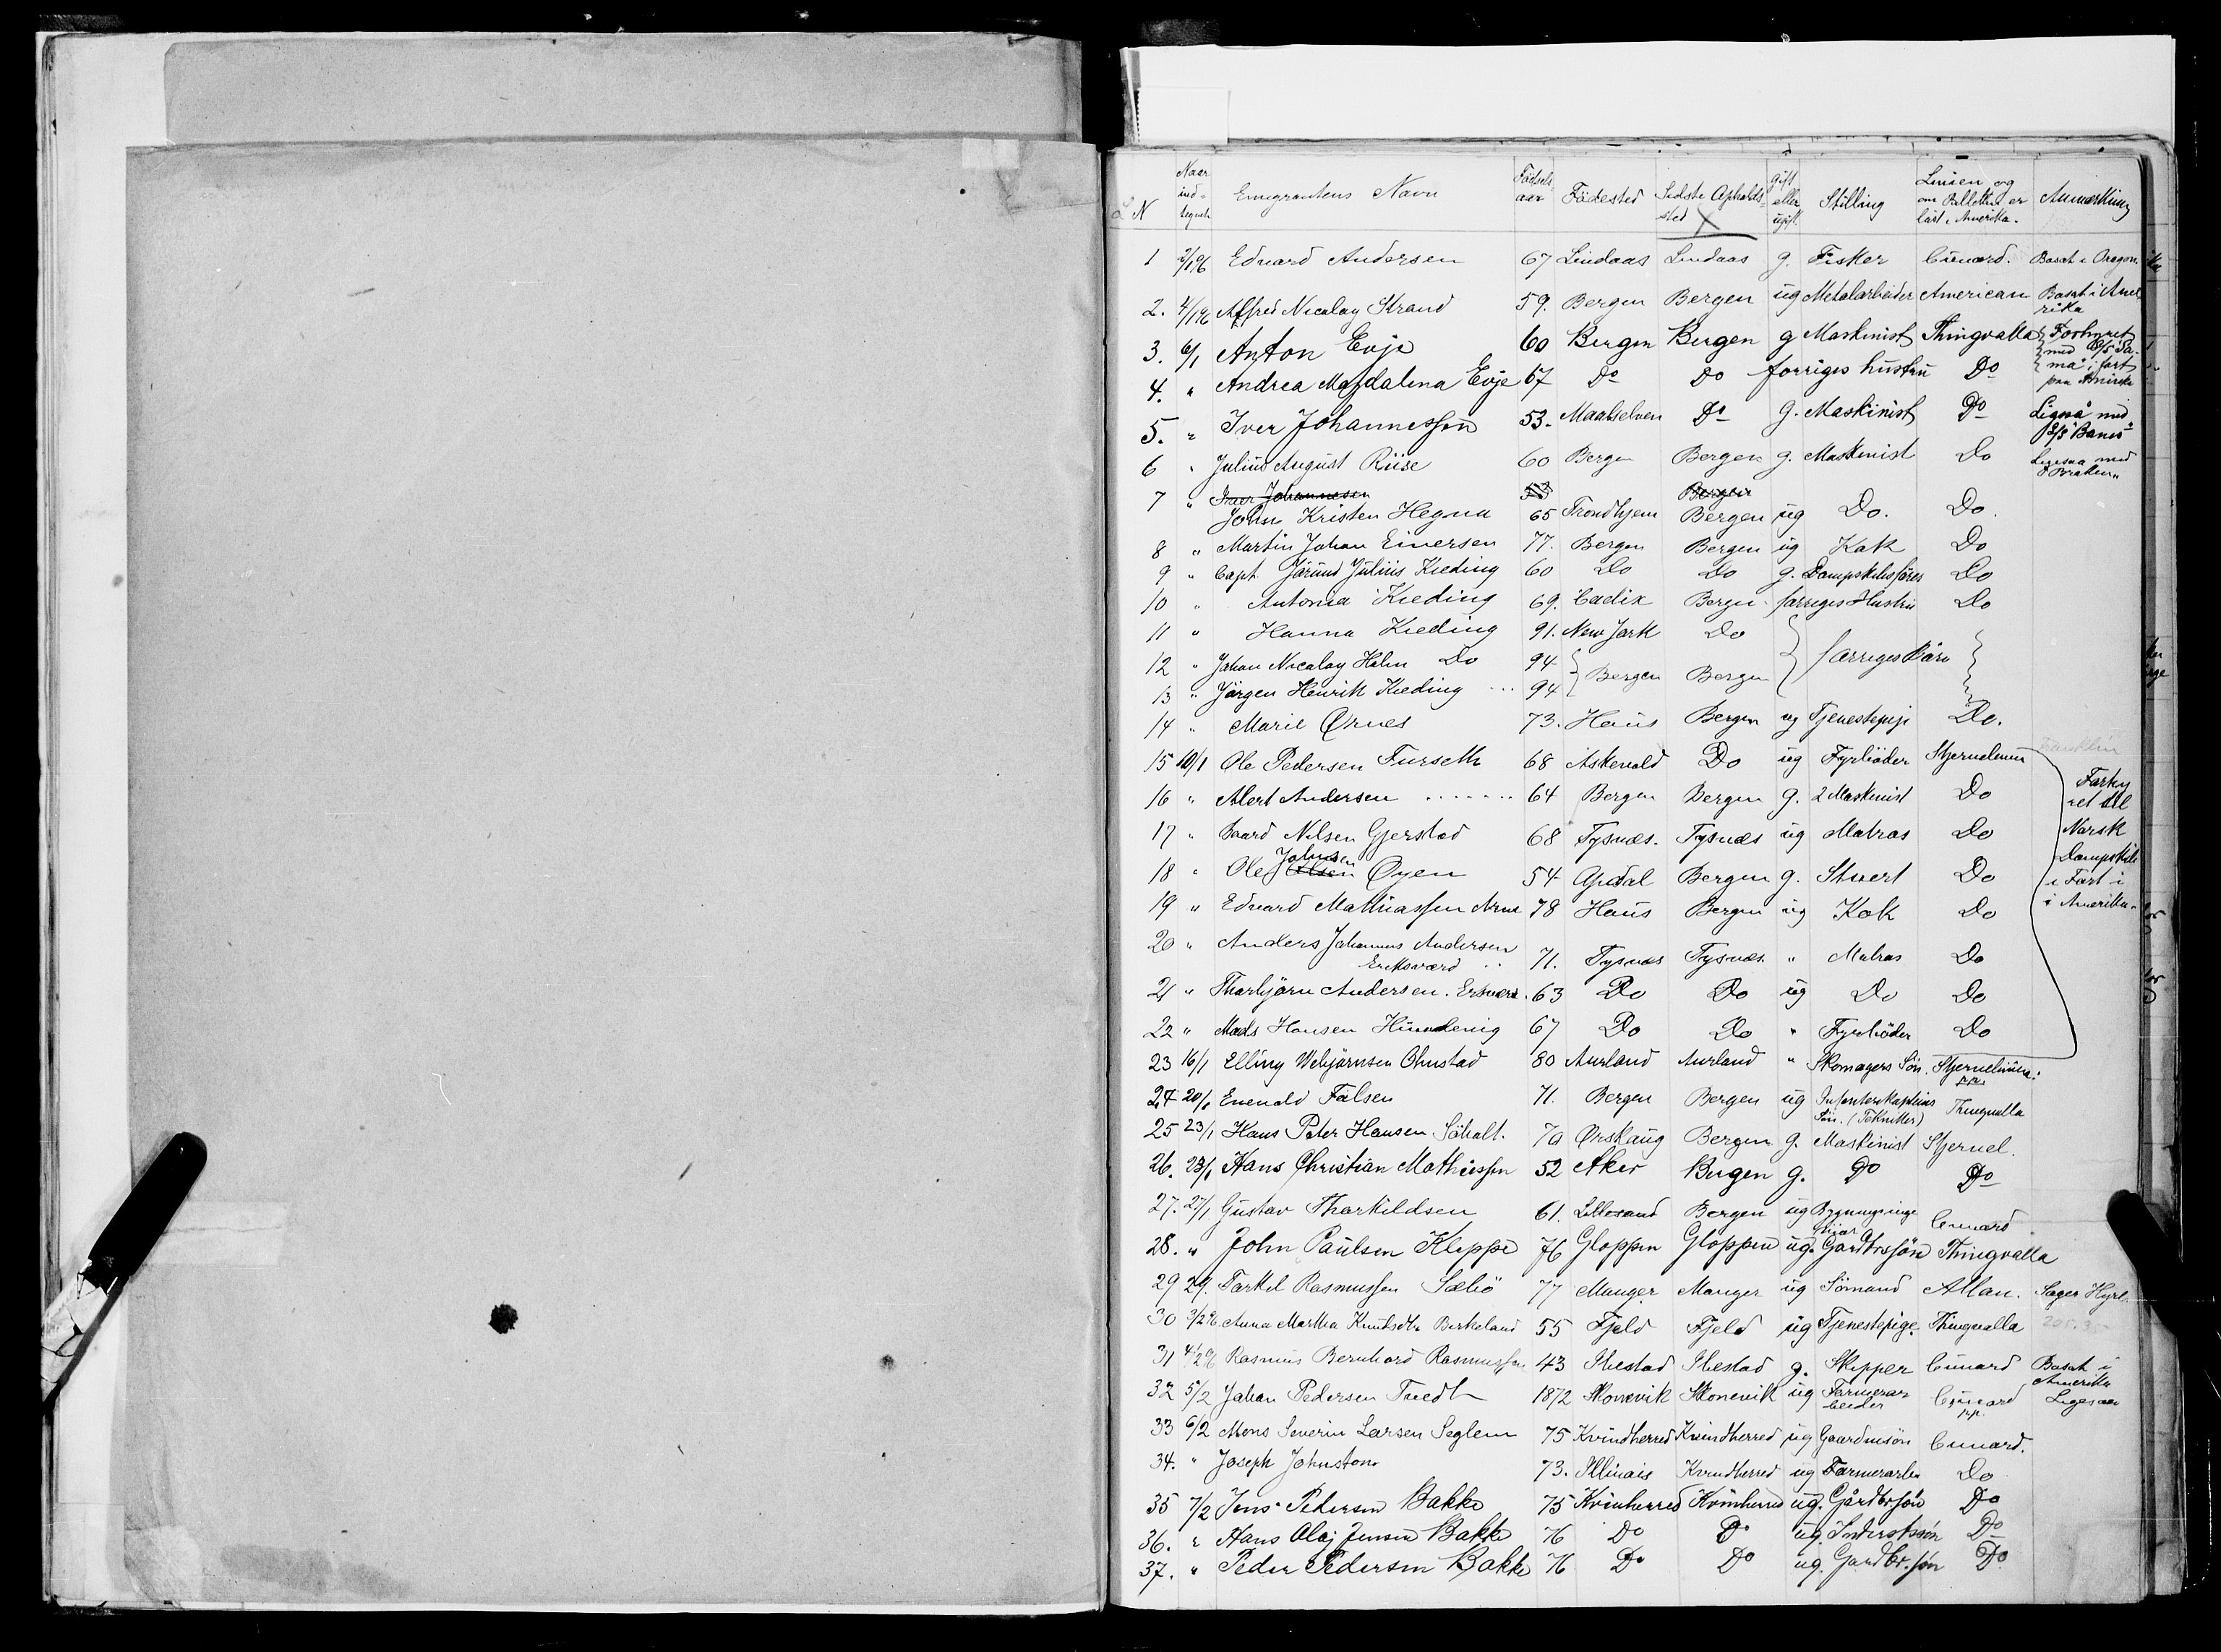 L N Naar ind- tegnet Emigrantens Navn Fødsels- aar Fødested Sidste Opholds- sted X gift eller ugift Stilling Linien og om Billetten er løst i Amerika. Anmærkning
1 2/1 96 Edvard Andersen 67 Lindaas Lindaas g. Fisker Cunard. Bosat i Oregon
2. 4/1 96 Alfred Nicolay Strand 59. Bergen Bergen ug Metalarbeider American Bosat i Ame rika
3. 6/1 Anton Evje 60 Bergen Bergen g Maskinist Thingvalla Forhyret
4. " Andrea Magdalena Evje 67 Do Do forriges hustru Do
5. " Iver Johannessen 53. Maalselven Do g. Maskinist Do
6 " Julius August Riise 60 Bergen Bergen g. Maskinist Do
7 " Iver Johannesen 53 Bergen
John Kristen Hegna 65 Trondhjem Bergen ug Do. Do.
8 " Martin Johan Einersen 77. Bergen Bergen ug Kok Do
9 " Capt. Jørund Julius Kieding 60 Do Do g. Dampskibsfører Do
10 " Antonia Kieding 69. Cadix Bergen forriges Hustru Do
11 " Hanna Kieding 91. New York Do
12 " Johan Nicolay Holm Do 94 Bergen Bergen forriges Børn
13 " Jørgen Henrik Kieding 94
14 " Marie Ørnes 73. Haus Bergen ug Tjenestepige Do.
15 10/1 Ole Pedersen Furseth 68 Askevold Do ug Fyrbøder Stjernelinien
16 " Alert Andersen 64 Bergen Bergen g. 2 Maskinist Do Forhy ret til
17 " Baard Nilsen Gjerstad 68 Tysnæs. Tysnæs ug Matros Do Norsk
18 " Ole Johnsen Olsen Øyen 54 Opdal Bergen g. Stuert Do Dampskib i Fart i
19 " Edvard Mathiassen Arne 78 Haus Bergen ug Kok Do i Amerika.
20 " Anders Johannes Andersen Eriksværd 71. Tysnæs Tysnæs " Matros Do
21 " Thorbjørn Andersen 63 Do Do ug Do Do
22 " Mads Hansen 67 Do Do " Fyrbøder Do
23 16/1 Elling Vebjørnsen Ohnstad 80 Aurland Aurland " Skomagers Søn. Stjernelinien. pp.
24 20/1 Enevold Falsen 71. Bergen Bergen ug Infanterikapteins Søn. (Tekniker) Thingvalla
25 23/1 Hans Peter Hansen Søholt. 70 Ørskaug Bergen g. Maskinist Stjernel.
26. 23/1 Hans Christian Mathiessen 52 Aker Bergen g. Do Do
27. 27/1 Gustav Thorkildsen 61. Lillesand Bergen ug Bygningsinge niør Cunard
28. " John Paulsen Kleppe 76 Gloppen Gloppen ug. Gardbrssøn Thingvalla
29 29. Torkel Rasmussen Sæbø 77 Manger Manger ug Sømand Allan. Søger Hyre.
30 3/2 96. Anna Martha Knutsdtr Birkeland 55 Fjeld Fjeld ug Tjenestepige. Thingvalla
31 4/2 96 Rasmus Bernhard Rasmussen 43 Ibestad Ibestad g. Skipper Cunard Bosat i Amerika
32 5/2 Johan Pedersen Tvedt 1872 Skonevik Skonevik ug Farmerar beider Cunard pp. Ligesaa
33 6/2 Mons Severin Larsen Seglem 75 Kvindherred Kvindherred ug Gaardmsøn Cunard.
34. " Joseph Johnston 73. Illinois Kvindherred ug Farmerarb. Do
35 7/2 Jens Pedersen Bakke 75 Kvinherred Kvinherred ug. Gårdbr.søn Do
36. " Hans Olaj Jensen Bakke 76 Do Do ug. Inderstssøn Do
37. " Peder Pedersen Bakke 76 Do Do ug. Gardbr.søn Do